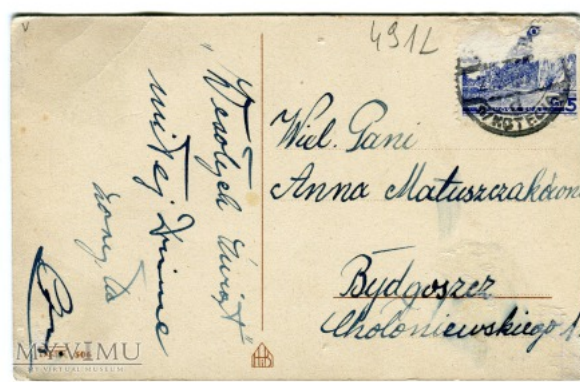 491L
"Wesołych Świąt"
miłej
Wiel. Pani
Anna Matuszczakówna
Bydgoszcz
Choloniewskiego
5
MYVIMU
MY VIRTUAL MUSEUM